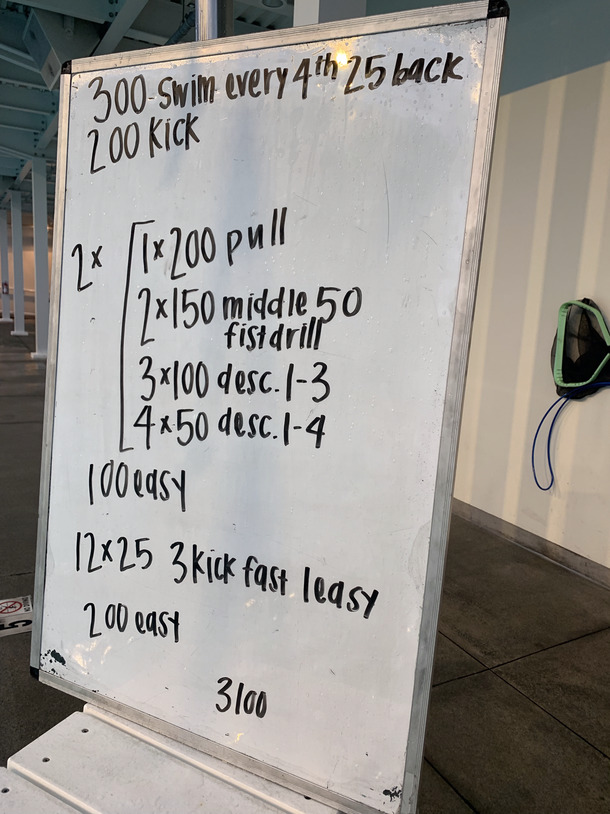 300 - Swim every 4th 25 back
200 Kick
2x
1x200 pull
2x150 middle 50
fist drill
3x100 desc. 1-3
4x50 desc. 1-4
100 easy
12x25 3 kick fast 1 easy
200 easy
3100